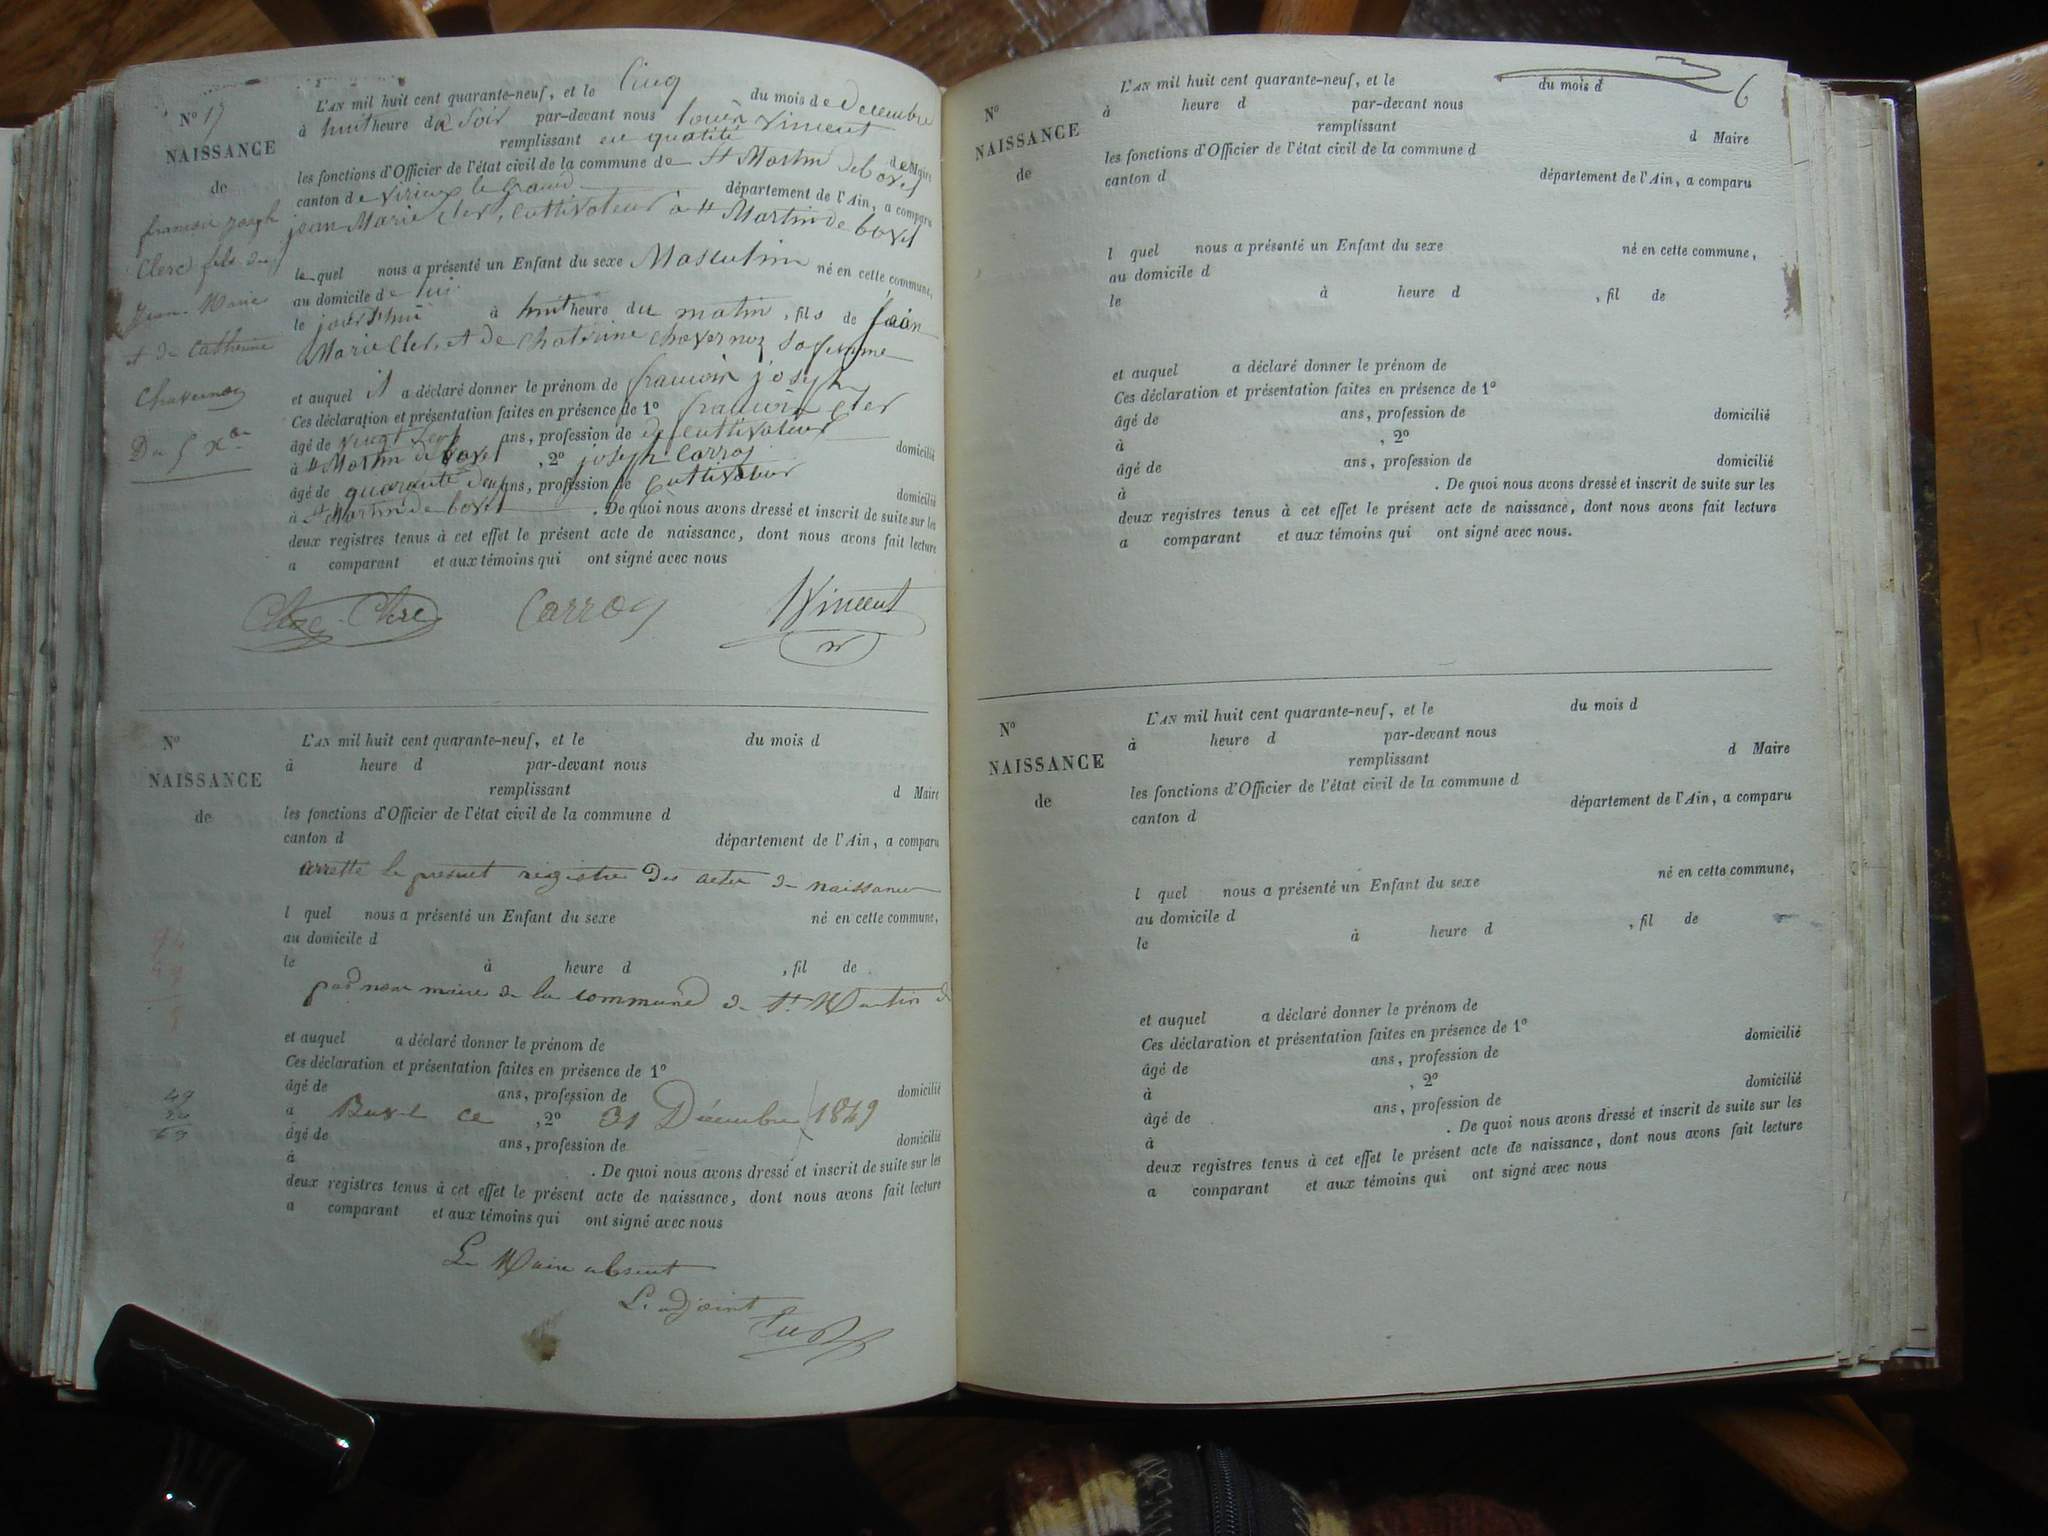 N° 17
NAISSANCE
de
françois joseph
Clerc fils de
Jean Marie
et de Catherine
Chavernoz
Du 5 Xbre
L'AN mil huit cent quarante-neuf, et le Cinq du mois de Decembre
à huit heure du Soir par-devant nous louis Vincent
remplissant en qualité de Maire
les fonctions d'Officier de l'état civil de la commune de St Martin de bavel
canton de virieux le Grand département de l'Ain, a comparu
jean Marie Clerc, Cultivateur a St Martin de bavel
le quel nous a présenté un Enfant du sexe Masculin né en cette commune,
au domicile de lui
le jourd'hui à huit heure du matin, fils de jean
Marie Clerc et de Chaterine Chavernoz Sa femme
et auquel il a déclaré donner le prénom de francois joseph
Ces déclaration et présentation faites en présence de 1° francois Clerc
âgé de vingt ans, profession de de Cultivateur domicilié
à St Martin de bavel, 2° joseph Carroz
âgé de quarante deux ans, profession de Cultivateur domicilié
à St Martin de bavel. De quoi nous avons dressé et inscrit de suite sur les
deux registres tenus à cet effet le présent acte de naissance, dont nous avons fait lecture
a comparant et aux témoins qui ont signé avec nous
Clerc Carroz Vincent
N°
NAISSANCE
de
L'AN mil huit cent quarante-neuf, et le du mois d
à heure d par-devant nous
remplissant d Maire
les fonctions d'Officier de l'état civil de la commune d
canton d département de l'Ain, a comparu
arretté le present registre des actes de naissances
l quel nous a présenté un Enfant du sexe né en cette commune,
au domicile d
le à heure d , fil de
par nous maire de la commune de St Martin de
et auquel a déclaré donner le prénom de
Ces déclaration et présentation faites en présence de 1°
âgé de ans, profession de domicilié
à Bavel ce , 2° 31 Décembre 1849
âgé de ans, profession de domicilié
à . De quoi nous avons dressé et inscrit de suite sur les
deux registres tenus à cet effet le présent acte de naissance, dont nous avons fait lecture
a comparant et aux témoins qui ont signé avec nous
Le Maire absent
L'adjoint
6
N°
NAISSANCE
de
L'AN mil huit cent quarante-neuf, et le du mois d
à heure d par-devant nous
remplissant d Maire
les fonctions d'Officier de l'état civil de la commune d
canton d département de l'Ain, a comparu
l quel nous a présenté un Enfant du sexe né en cette commune,
au domicile d
le à heure d , fil de
et auquel a déclaré donner le prénom de
Ces déclaration et présentation faites en présence de 1°
âgé de ans, profession de domicilié
à , 2°
âgé de ans, profession de domicilié
à . De quoi nous avons dressé et inscrit de suite sur les
deux registres tenus à cet effet le présent acte de naissance, dont nous avons fait lecture
a comparant et aux témoins qui ont signé avec nous.
N°
NAISSANCE
de
L'AN mil huit cent quarante-neuf, et le du mois d
à heure d par-devant nous
remplissant d Maire
les fonctions d'Officier de l'état civil de la commune d
canton d département de l'Ain, a comparu
l quel nous a présenté un Enfant du sexe né en cette commune,
au domicile d
le à heure d , fil de
et auquel a déclaré donner le prénom de
Ces déclaration et présentation faites en présence de 1°
âgé de ans, profession de domicilié
à , 2°
âgé de ans, profession de domicilié
à . De quoi nous avons dressé et inscrit de suite sur les
deux registres tenus à cet effet le présent acte de naissance, dont nous avons fait lecture
a comparant et aux témoins qui ont signé avec nous